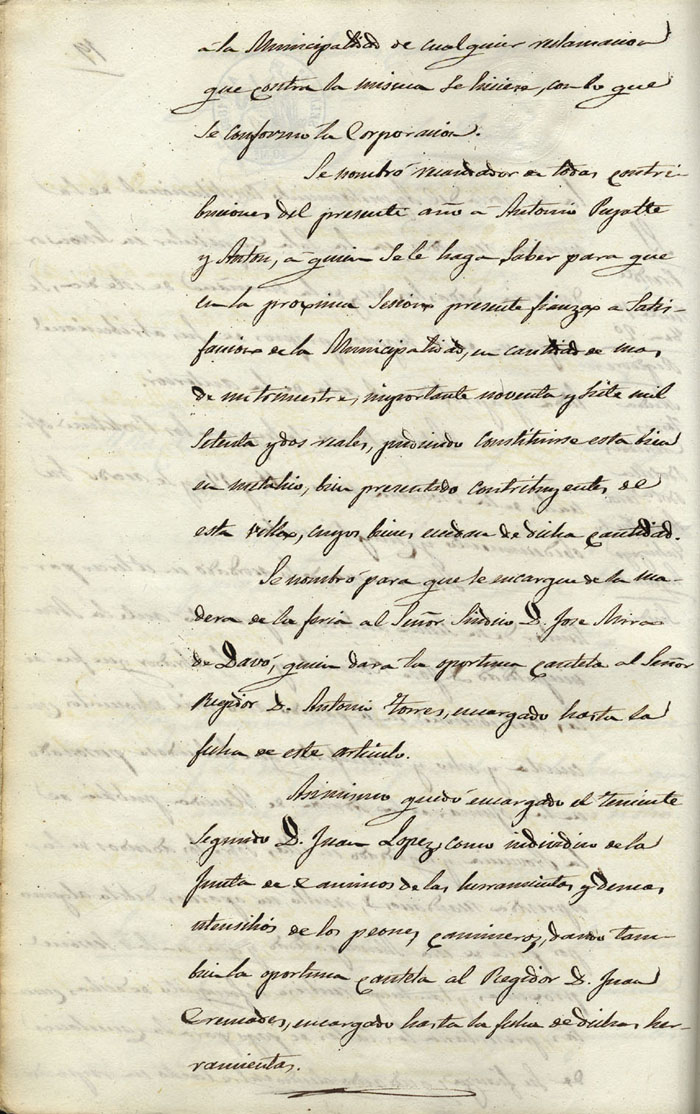 á la Municipalidad de cualquier reclamacion
que contra la misma se hiciere, con lo que
se conformo la Corporacion.
Se nombró recaudador en todas contri-
buciones del presente año a Antonio Pujalte
y Anton, á quien se le haga saber para que
en la proxima Sesion presente fianza a satis-
facion de la Municipalidad, en cantidad de mas
de un trimestre, importante noventa y siete mil
setenta y dos reales, pudiendo constituirse esta bien
en metalico, bien presentado contribuyentes de
esta villa, cuyos bienes escedan de dicha cantidad.
Se nombró para que se encargue de la ma-
dera de la feria al Señor Sindico D. Jose Mira
de Davó, quien dara la oportuna cautela al Señor
Regidor D. Antonio Torres, encargado hasta la
fecha de este articulo.
Asimismo quedó encargado el Teniente
Segundo D. Juan Lopez, como individuo de la
Junta de Caminos de las herramientas y demas
utensilios de los peones camineros, dando tam-
bien la oportuna cautela al Regidor D. Juan
Cremades, encargado hasta la fecha de dichas her-
ramientas.